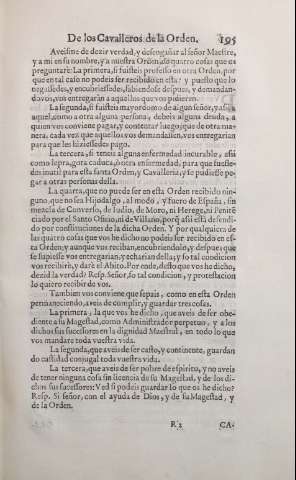 De los Cavalleros de la Orden. 195
Aveisme de dezir verdad, y desengañar al señor Maestre,
y a mi en su nombre, y a nuestra Orden, de quatro cosas que os
preguntarè: La primera, si fuisteis professo en otra Orden, por
que en tal caso no podeis ser recibido en esta: y puesto que lo
negassedes, y encubriessedes, sabiendose despues, y demandan-
dovos, vos entregarian a aquellos que vos pidieren.
La segunda, si fuisteis mayordomo de algun señor, y assi a
aquel, como a otra alguna persona, debeis alguna deuda, a
quien vos conviene pagar, y contentar luego; que de otra ma-
nera, cada vez que aquellos vos demandassen, vos entregarian
para que les hiziessedes pago.
La tercera, si teneis alguna enfermedad incurable, assi
como lepra, gota caduca, ò otra enfermedad, para que fuesse-
des inutil para esta santa Orden, y Cavalleria, y se pudiesse pe-
gar a otras personas della.
La quarta, que no puede ser en esta Orden recibido nin-
guno, que no sea Hijodalgo, al modo, y fuero de España, sin
mezcla de Converso, de Iudio, de Moro, ni Herege, ni Penitẽ
ciado por el Santo Oficio, ni de Villano, porq̃ assi està defendi-
do por constituciones de la dicha Orden. Y por qualquiera de
las quatro cosas que vos he dicho no podeis ser recibido en es-
ta Orden; y aunque vos reciban, encubriendolo, y despues que
se supiesse vos entregarian, y echarian della; y so tal condicion
vos recibirè, y darè el Abito. Por ende, desto que vos he dicho,
dezid la verdad? Resp. Señor, so tal condicion, y protestacion
lo quiero recibir de vos.
Tambien vos conviene que sepais, como en esta Orden
permaneciendo, aveis de cumplir, y guardar tres cosas.
La primera, la que vos he dicho, que aveis de ser obe-
diente a su Magestad, como Administrador perpetuo, y a los
dichos sus sucessores en la dignidad Maestral, en todo lo que
vos mandare toda vuestra vida.
La segunda, que aveis de ser casto, y continente, guardan
do castidad conjugal toda vuestra vida.
La tercera, que aveis de ser pobre de espiritu, y no aveis
de tener ninguna cosa sin licencia de su Magestad, y de los di-
chos sus sucessores: Ved si podeis guardar lo que os he dicho?
Resp. Si señor, con el ayuda de Dios, y de su Magestad, y
de la Orden.
R 2 CA-